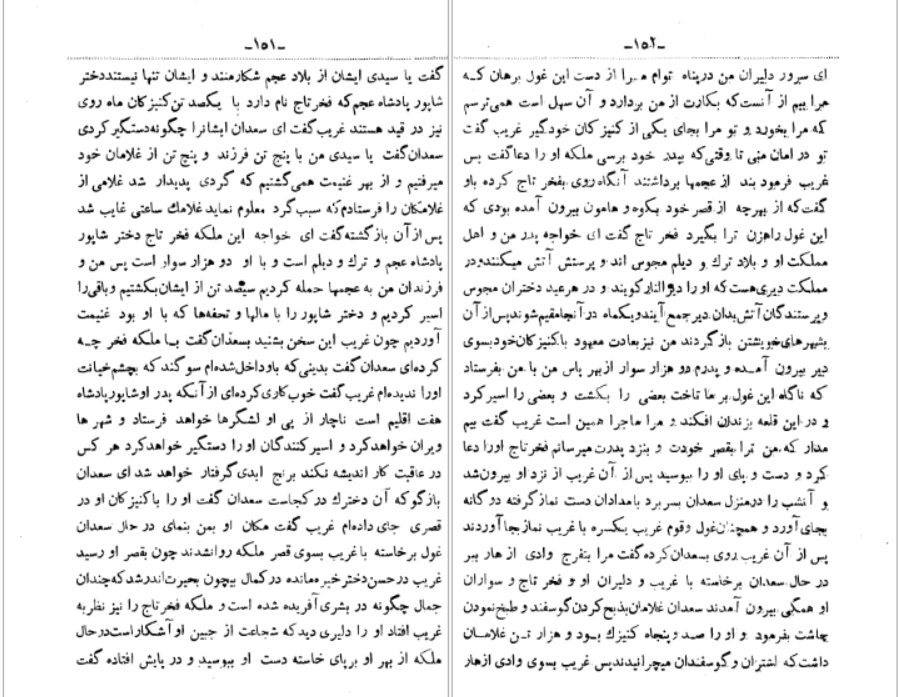 -۱۵۱-
گفت یا سیدی ایشان از بلاد عجم شکارمنند و ایشان تنها نیستنددختر
شاپور پادشاه عجم‌که فخرتاج نام دارد با یکصد تن‌کنیزکان ماه روی
نیز در قید هستند غریب‌گفت ای سعدان ایشانرا چگونه‌دستگیرکردی
سعدان‌گفت یا سیدی من با پنج تن فرزند و پنج تن از غلامان خود
میرفتیم و از بهر غنیمت همی‌گشتیم که گردی پدیدار شد غلامی از
غلامکان را فرستادم‌که سبب‌گرد معلوم نماید غلامك ساعتی غایب شد
پس‌از آن بازگشته‌گفت ای خواجه این ملکه فخر تاج دختر شاپور
پادشاه عجم و ترك و دیلم است و با او دو هزار سوار است پس من و
فرزندان من به عجمها حمله کردیم سیصد تن از ایشان‌بکشتیم وباقی‌را
اسیر کردیم و دختر شاپور را با مالها و تحفه‌ها که با او بود غنیمت
آوردیم چون غریب این سخن بشنید بسعدان‌گفت بـا ملکه فخر چـه
کرده‌ای سعدان گفت بدینی‌که باوداخل‌شده‌ام سوگند که بچشم‌خیانت
اورا ندیده‌ام غریب گفت خوب‌کاری‌کرده‌ای از آنکه پدر اوشاپورپادشاه
هفت اقلیم است ناچار از پی او لشگرها خواهد فرستاد و شهر ها
ویران خواهدکرد و اسیرکنندگان او را دستگیر خواهدکرد هر کس
در عاقبت کار اندیشه نکند برنج ابدی‌گرفتار خواهد شد ای سعدان
بازگو که آن دخترك در کجاست سعدان گفت او را باکنیزکان او در
قصری جای داده‌ام غریب گفت مکان او بمن بنمای در حال سعدان
غول برخاسته با غریب بسوی قصر ملکه روانشدند چون بقصر او رسید
غریب درحسن‌دخترخیره‌مانده درکمال بیچون بحیرت‌اندرشدکه‌چندان
جمال چگونه در بشری آفریده شده است و ملکه فخرتاج را نیز نظربه
غریب افتاد او را دلیری دیدکه شجاعت از جبین اوآشکاراست‌درحال
ملکه از بهر او برپای خاسته دست او ببوسید و در پایش افتاده گفت
-۱۵۲-
ای سرور دلیران من درپناه توام مـرا از دست این غول برهان کـه
مرا بیم از آنست‌که بکارت از من بردارد و آن سهل است همی‌ترسم
که مرا بخورد و تو مرا بجای یکی از کنیزکان خودگیر غریب گفت
تو در امان منی تا وقتی‌که بپدر خود برسی ملکه او را دعاگفت پس
غریب فرمود بند از عجمها برداشتند آنگاه‌روی بفخر تاج کرده باو
گفت‌که از بهرچه از قصر خود بکوه و هامون بیرون آمده بودی که
این غول راهزن ترا بگیرد فخر تاج گفت ای خواجه پدر من و اهل
مملکت او و بلاد ترك و دیلم مجوس اند و پرستش آتش میکنند ودر
مملکت دیری‌هست‌که او را دیرالنارگویند و در هرعید دختران مجوس
وپرستندگان‌آتش‌بدان‌دیرجمع‌آیندویکماه درآنجامقیم‌شوندپس‌از آن
بشهرهای‌خویشتن بازگردند من نیزبعادت معهود باکنیزکان‌خودبسوی
دیر بیرون آمـده و پدرم دو هزار سوار ازبهر پاس من با من بفرستاد
که ناگاه این غول بر ما تاخت بعضی را بکشت و بعضی را اسیرکرد
و در این قلعه بزندان افکند و مرا ماجرا همین است غریب گفت بیم
مدار که من ترا بقصر خودت و بنزد پدرت میرسانم فخرتاج اورا دعا
کرد و دست و پای او را ببوسید پس از آن غریب از نزد او بیرون‌شد
و آنشب را درمنزل سعدان بسر برد بامدادان دست نماز گرفته دوگانه
بجای‌آورد و همچنان‌غول وقوم غریب یکسره با غریب نمازبجاآوردند
پس از آن غریب روی بسعدان‌کرده‌گفت مرا بتفرج وادی ازهار ببر
در حال سعدان برخاسته با غریب و دلیران او و فخر تاج و سواران
او همگی بیرون آمدند سعدان غلامان‌بذبح‌کردن‌گوسفند و طبخ‌نمودن
چاشت بفرمود و او را صد وپنجاه کنیزك بـود و هزار تـن غلامـان
داشت‌که اشتران وگوسفندان میچرانیدندپس غریب بسوی وادی ازهار